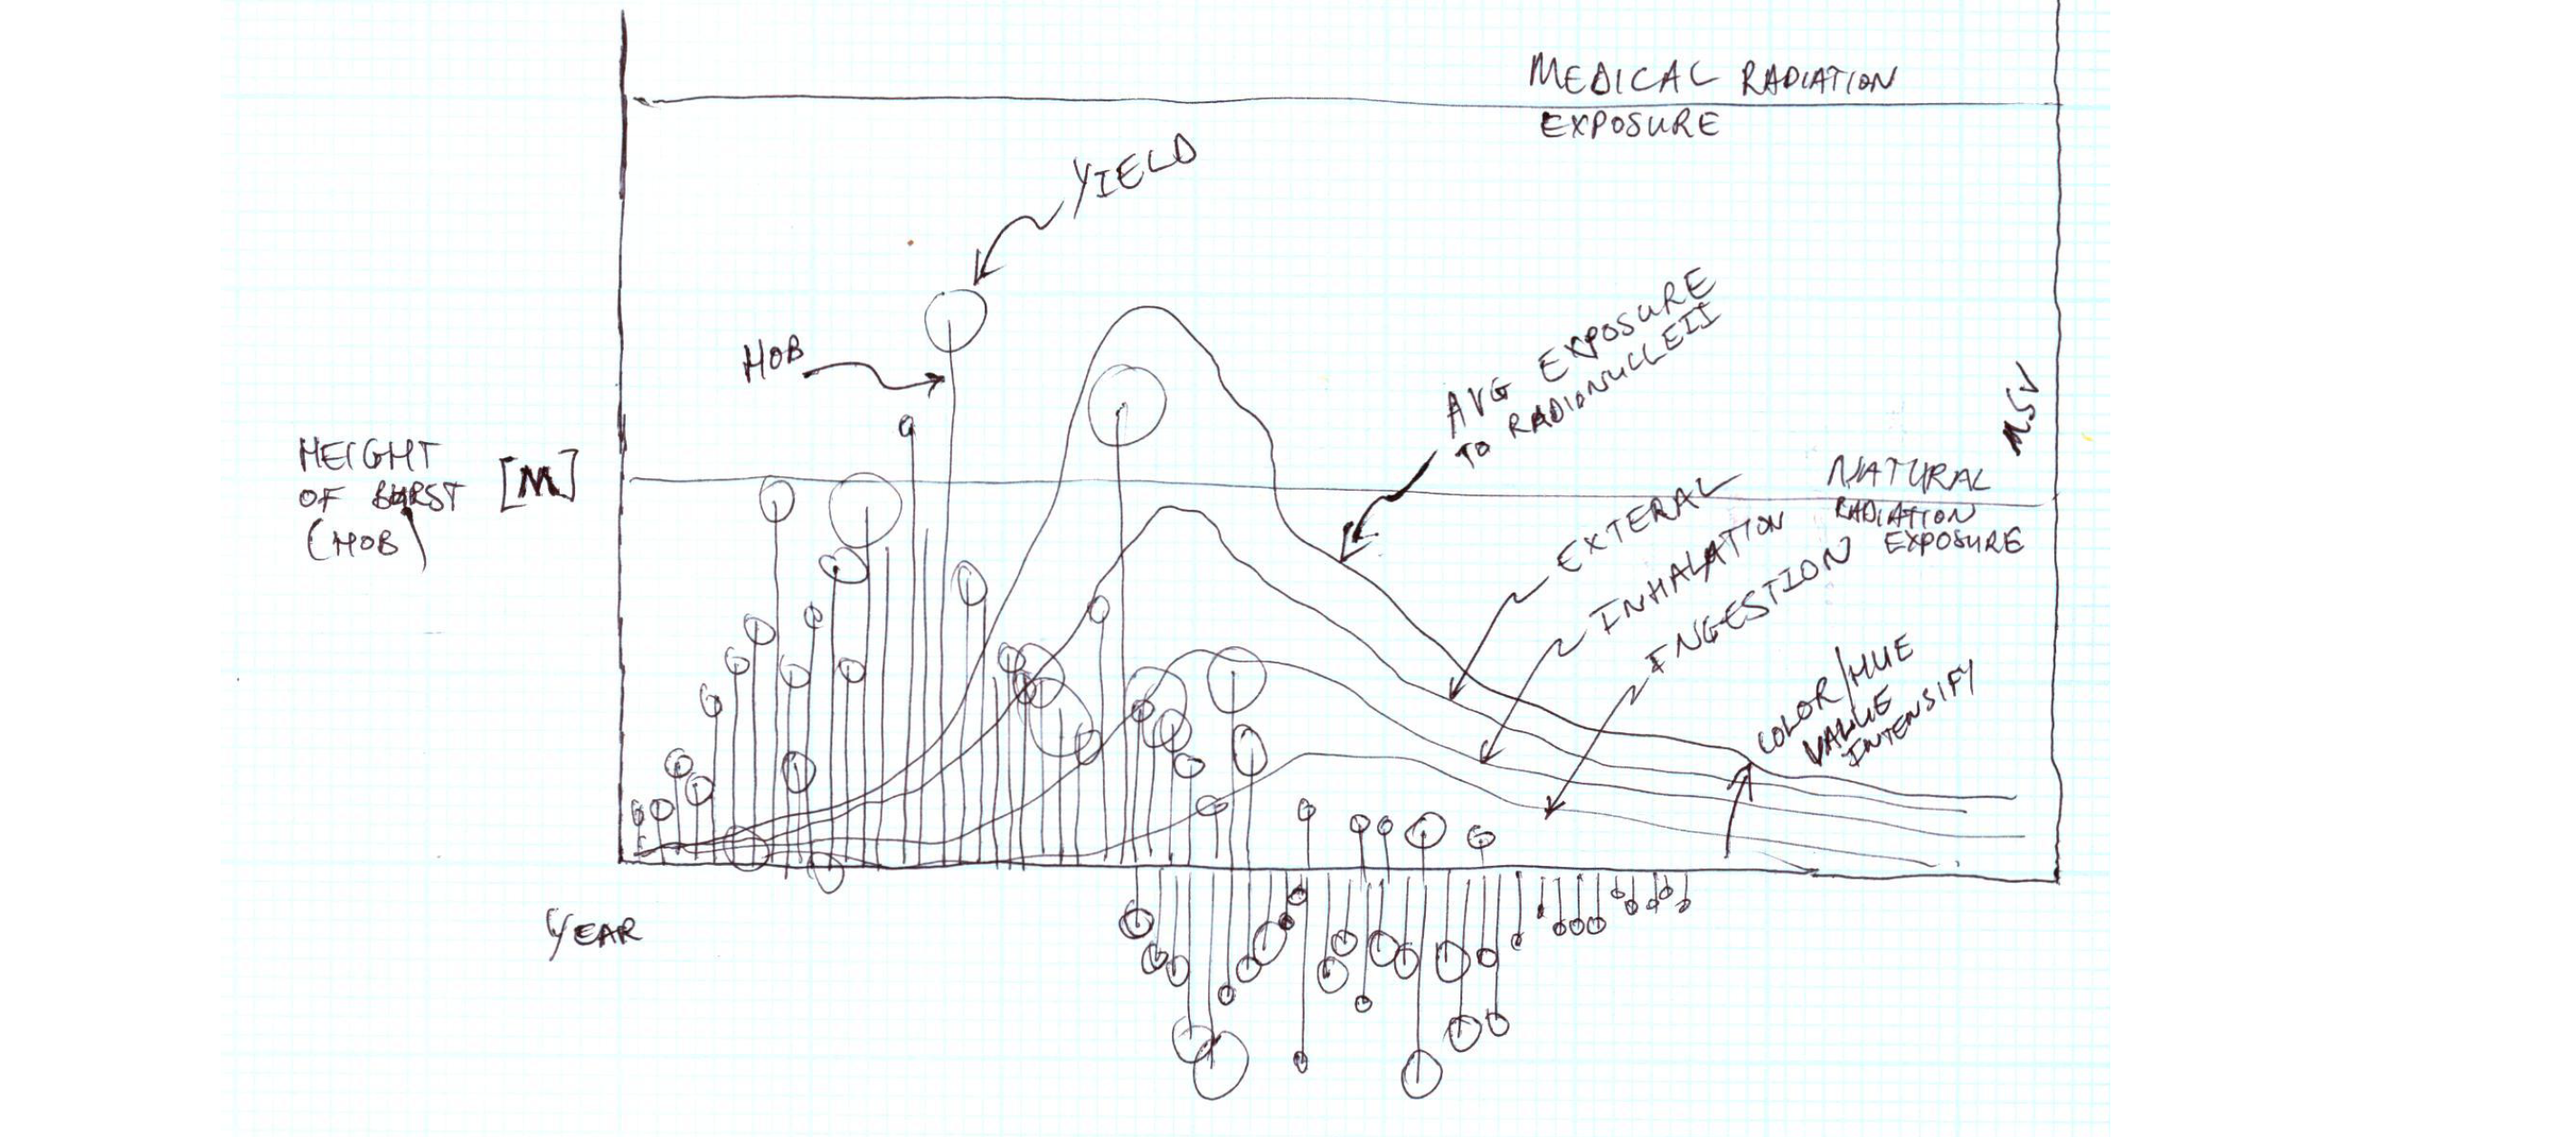 MEDICAL RADIATION
EXPOSURE
YIELD
HOB
AVG EXPOSURE
TO RADIONUCLEII
MSV
HEIGHT
OF BURST
(HOB)
[M]
NATURAL
RADIATION
EXPOSURE
EXTERAL
INHALATION
INGESTION
COLOR/HUE
VALUE
INTENSIFY
YEAR